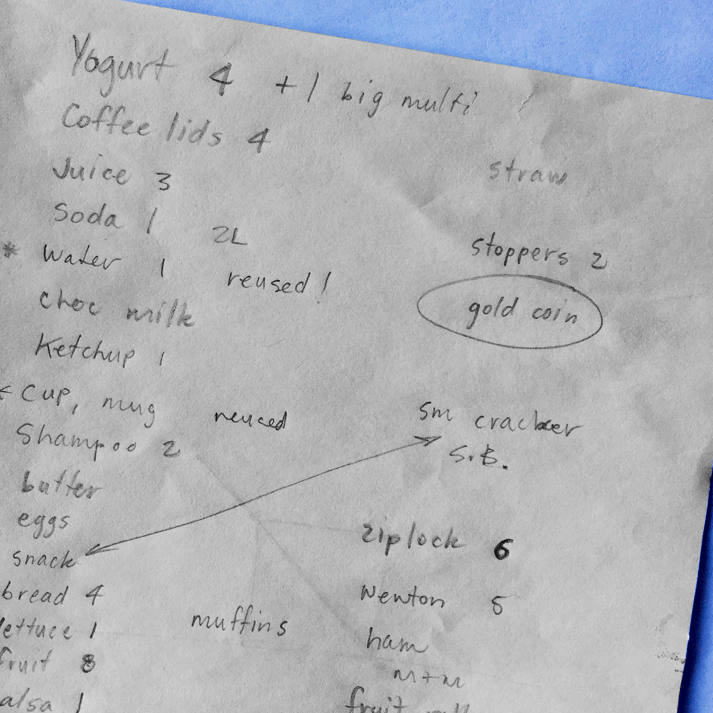 Yogurt 4 +1 big multi
Coffee lids 4
Juice 3
straw
Soda 1 2L
stoppers 2
* Water 1 reused!
gold coin
choc milk
Ketchup 1
Cup, mug reused
sm cracker
S.B.
Shampoo 2
butter
eggs
snack
ziplock 6
bread 4
Newton 5
lettuce 1
muffins
ham
fruit 8
m+m
alsa 1
fruit